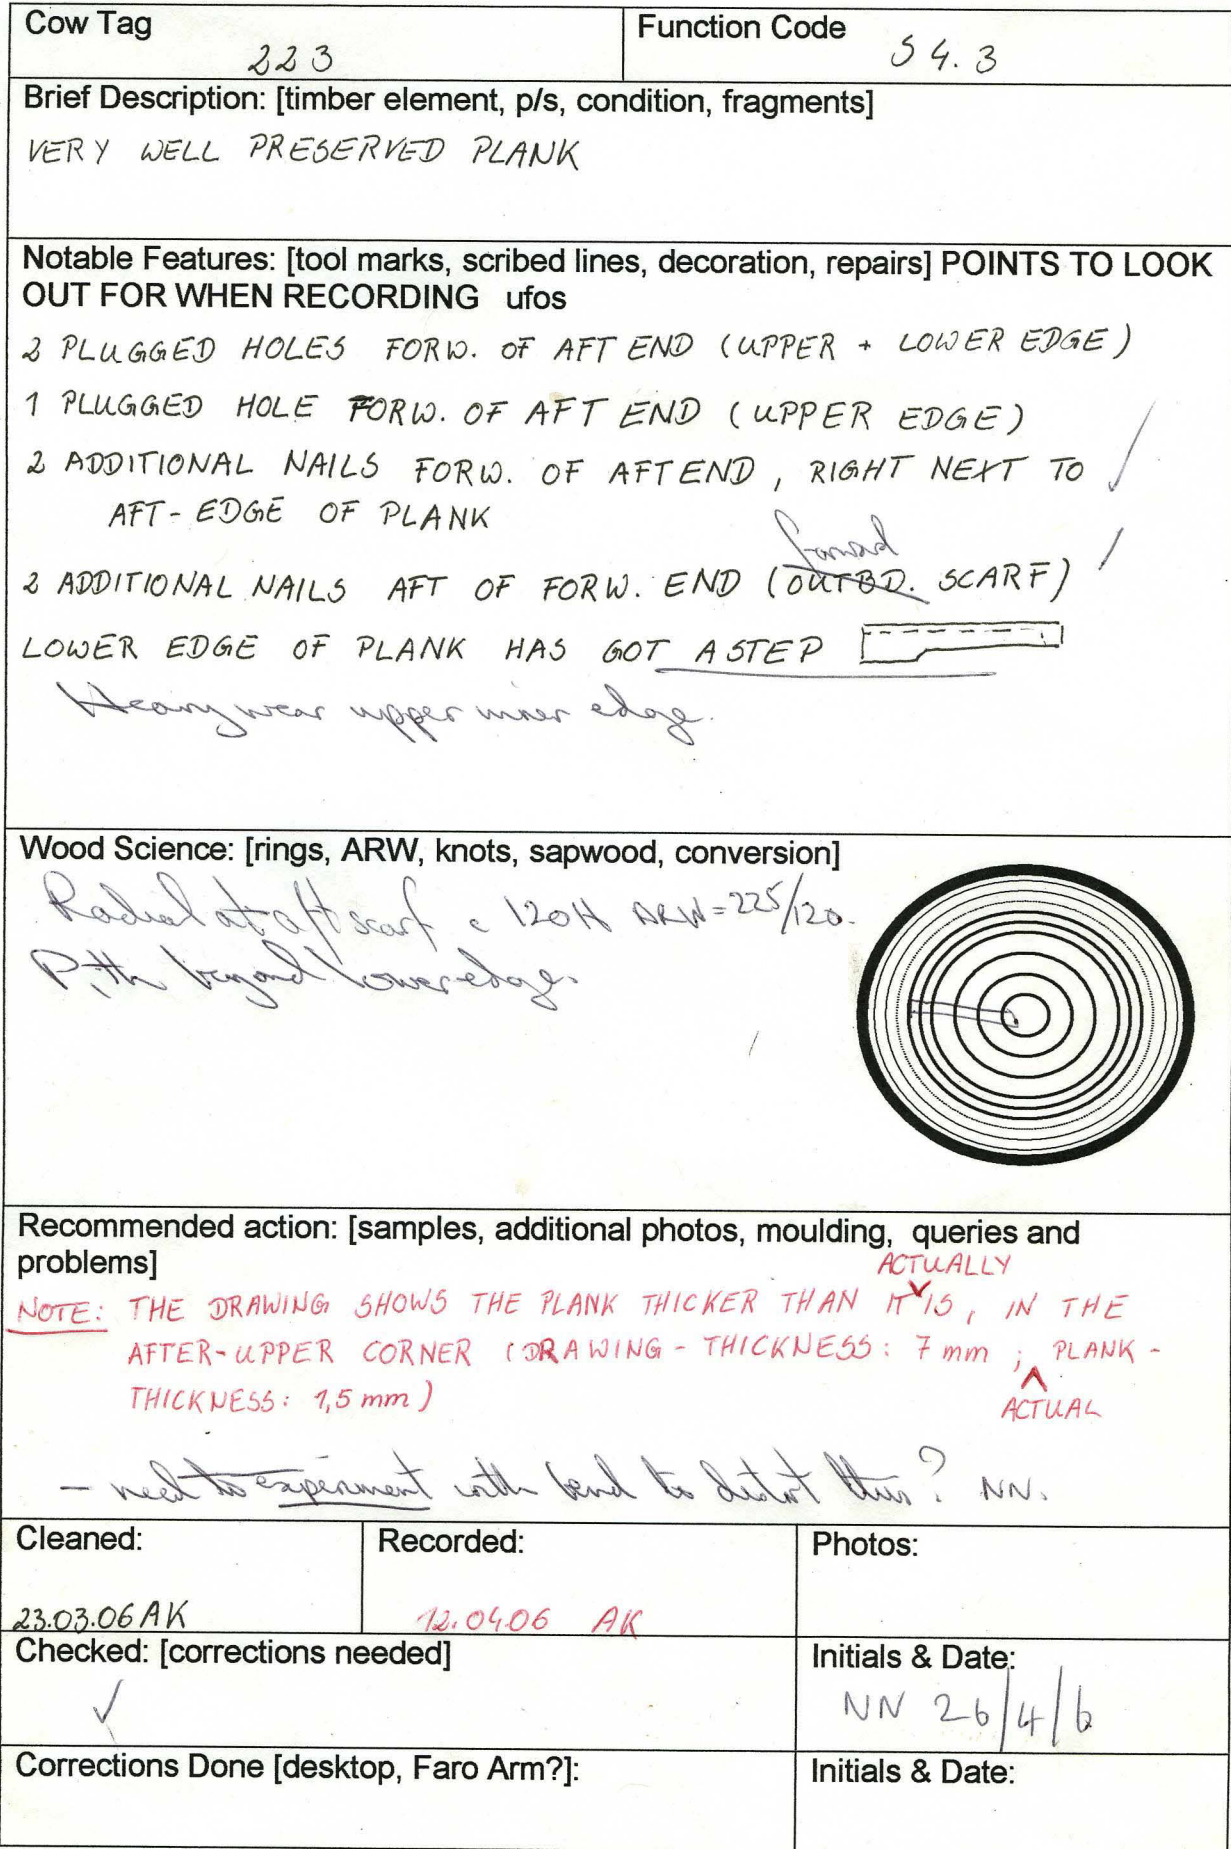 Cow Tag
223
Function Code
S4.3
Brief Description: [timber element, p/s, condition, fragments]
VERY WELL PRESERVED PLANK
Notable Features: [tool marks, scribed lines, decoration, repairs] POINTS TO LOOK
OUT FOR WHEN RECORDING ufos
2 PLUGGED HOLES FORW. OF AFT END (UPPER + LOWER EDGE)
1 PLUGGED HOLE FORW. OF AFT END (UPPER EDGE)
2 ADDITIONAL NAILS FORW. OF AFT END, RIGHT NEXT TO
AFT-EDGE OF PLANK
forward
2 ADDITIONAL NAILS AFT OF FORW. END (OUTBD. SCARF)
LOWER EDGE OF PLANK HAS GOT A STEP
Heavy wear upper inner edge.
Wood Science: [rings, ARW, knots, sapwood, conversion]
Radial at aft scarf c 120H ARW=225/120.
Pith beyond lower edge.
Recommended action: [samples, additional photos, moulding, queries and
problems]
ACTUALLY
NOTE: THE DRAWING SHOWS THE PLANK THICKER THAN IT IS, IN THE
AFTER-UPPER CORNER (DRAWING-THICKNESS: 7 mm ; PLANK-
THICKNESS: 1,5 mm)
ACTUAL
- need to experiment with bend to distort this? NN.
Cleaned:
23.03.06 AK
Recorded:
12.04.06 AK
Photos:
Checked: [corrections needed]
✓
Initials & Date:
NN 26/4/6
Corrections Done [desktop, Faro Arm?]:
Initials & Date: